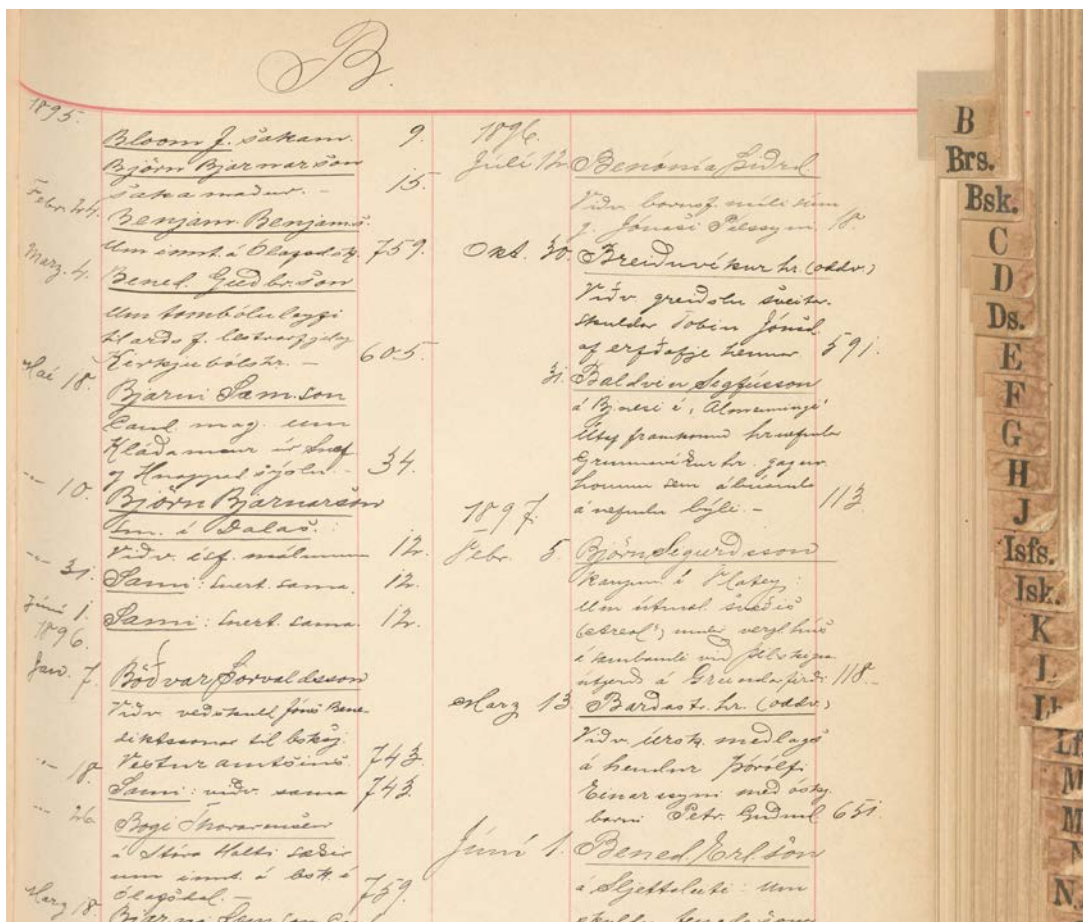 B.
1895.
Bloom J. sakam. 9.
Björn Bjarnarson
sakamaður. - 15.
Febr. 24. Benjam. Benjams.
Um innt. á Ólafsdsk. 759.
Marz. 4. Bened. Guðbr.son
Um tombóluleyfi
Kirkjubólshr. - 605.
Maí 18. Bjarni Sæm.son
Cand. mag. um
Kláðamaur úr Snæf
og Hnappad. sýslu. - 34.
" 10. Björn Bjarnarson
sm. í Dalas.:
Viðv. ísf. málunum 12.
" 31. Sami: snert. sama. 12.
Júní 1. Sami: snert. sama. 12.
1896.
Jan. 7. Böðvar Þorvaldsson
Viðv. veðskuld Jóns Bene-
diktssonar til bsksj.
Vesturamtsins. 743.
" 18. Sami: viðv. sama 743.
" 26. Bogi Thorarensen
í Stóra Holti
um innt. á bsk. í
Ólafsdal. - 759.
Marz 18. Bjarni Sæm.son Cand
1896.
Júlí 12. Benónía
Viðv. barnsf. máli sínu
g. Jónasi Pálssyni. 18.
Okt. 30. Breiðuvíkur hr. (oddv.)
Viðv. greiðslu sveitar-
skuldar Jónsd.
af erfðafje hennar. 591.
31. Baldvin Sigfússon
á í "Almenningi"
hrnefndar
Grunnavíkur hr. gagnv.
honum sem ábúanda
á nefndu býli. - 113
1897.
Febr. 5. Björn Sigurdsson
kaupm. í Flatey:
Um útmæl. svæðis
("areal") undir vergl. hús
í sambandi við þilskipa-
útgerð á Grundarfirði 118. -
Marz 13. Barðastr. hr. (oddv.)
Viðv. úrsk. meðlags
á hendur Þórólfi
Einarssyni með óskg.
barni Petr. Guðm.d 651.
Júní 1. Bened. Erl.son
á Sljettaleiti: Um
B
Brs.
Bsk.
C
D
Ds.
E
F
G
H
J
Isfs.
Isk.
K
L
M
M
N
N.